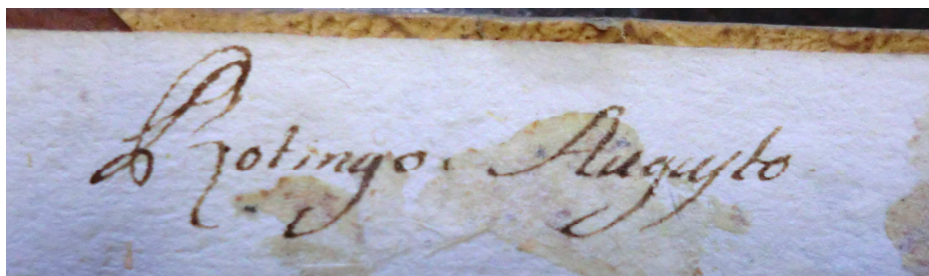 Rotingo. Augusto